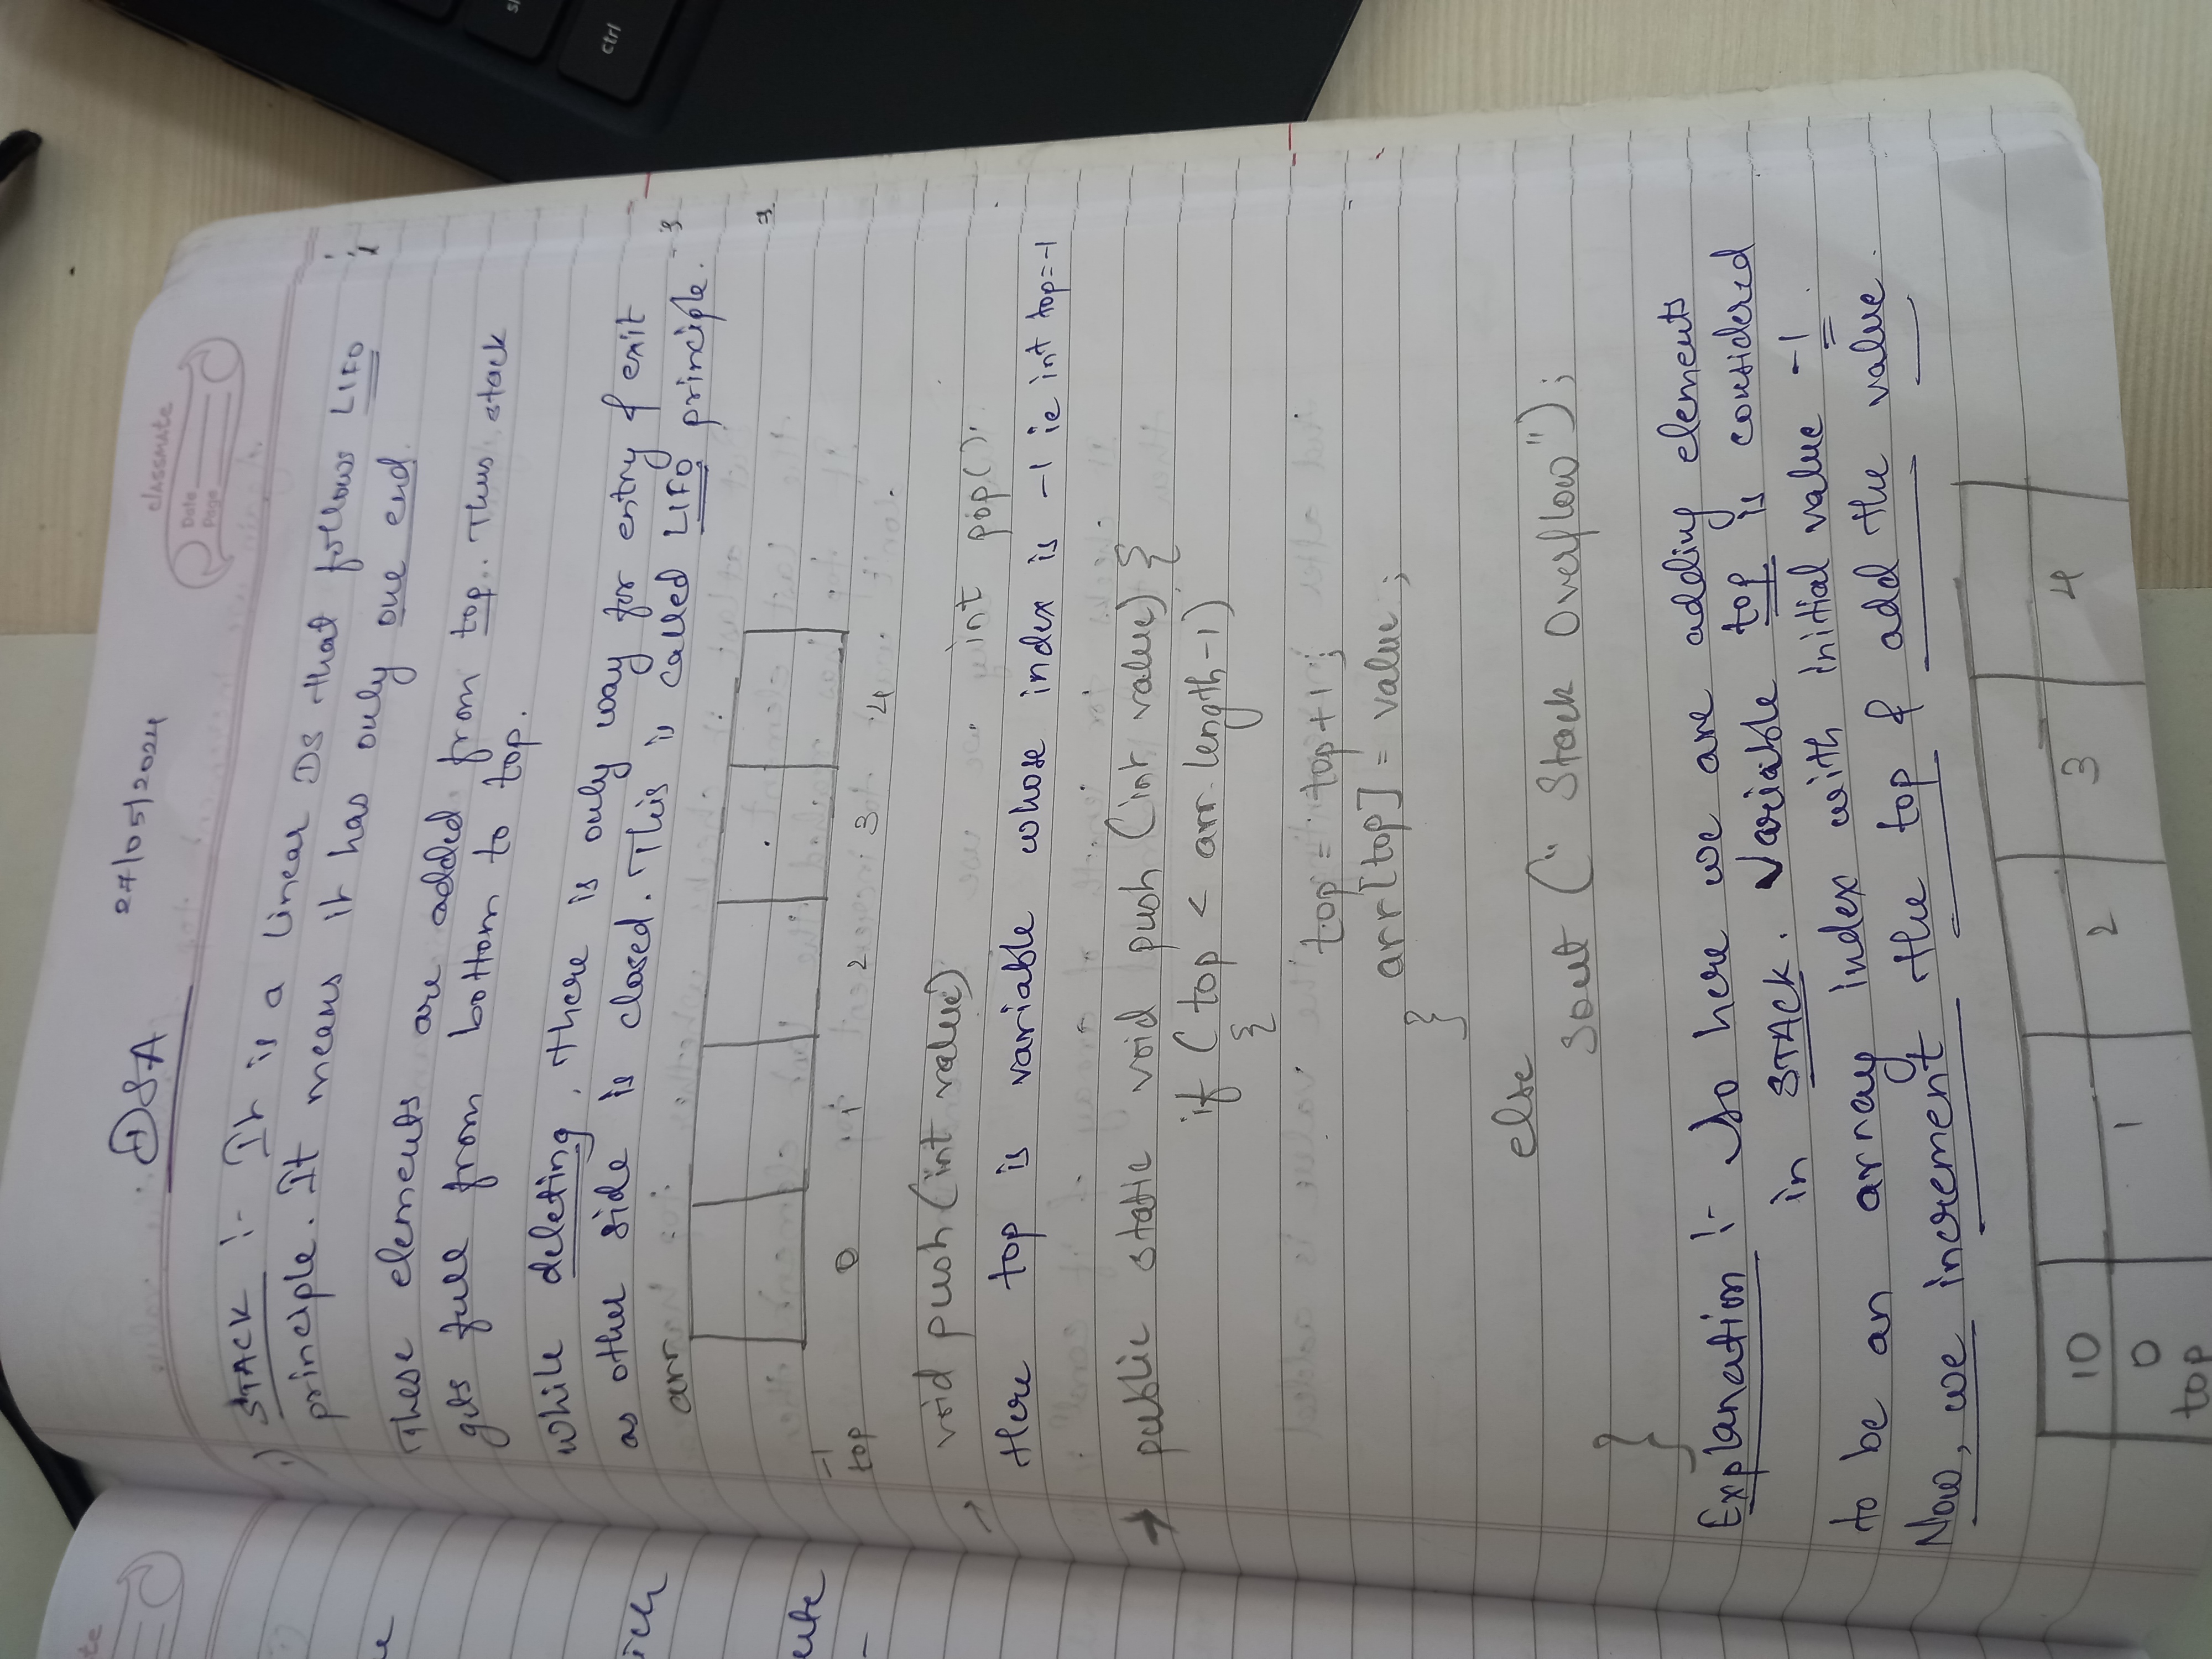 DSA
27/05/2024
classmate
Date
Page
1) STACK :- It is a linear DS that follows LIFO
principle. It means it has only one end.
These elements are added from top. Thus stack
gets full from bottom to top.
while deleting, there is only way for entry & exit
as other side is closed. This is called LIFO principle.
arr
-1
top 0 1 2 3 4
void push(int value) int pop()
→ Here top is variable whose index is -1 ie int top=-1
→ public static void push (int value) {
if ( top < arr.length-1)
{
top = top+1;
arr[top] = value ;
}
else
sout (" Stack Overflow");
}
Explanation :- So here we are adding elements
in STACK. Variable top is considered
to be an array index with initial value -1.
Now, we increment the top & add the value.
10
0 1 2 3 4
top
te
ich
ctrl